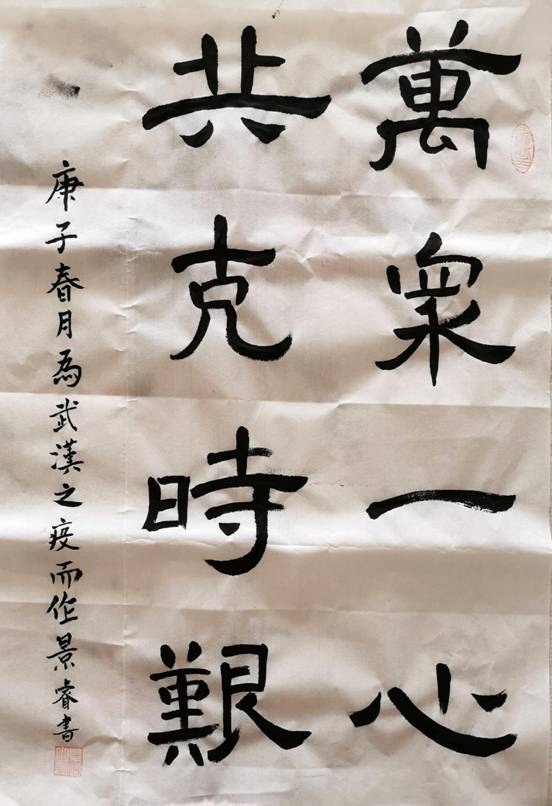 萬衆一心
共克時艱
庚子春月為武漢之疫而作景睿書